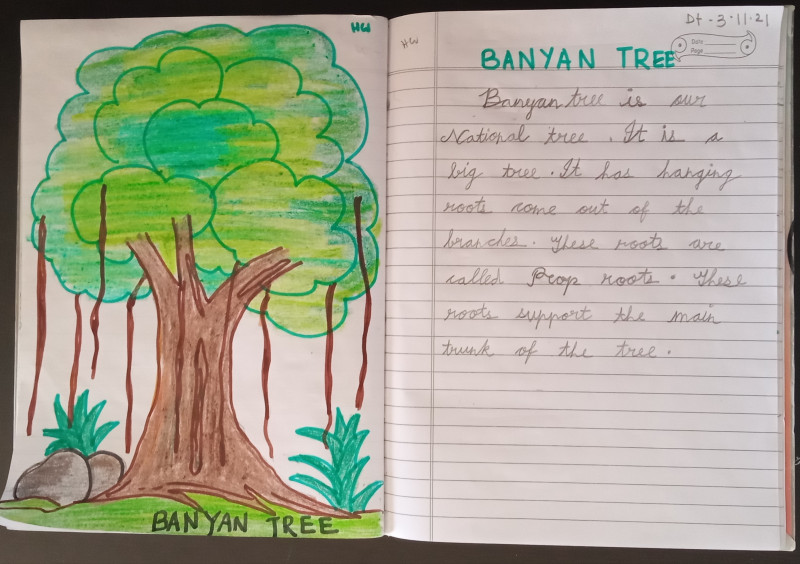 HW
BANYAN TREE
HW
Dt - 3·11·21
Date
Page
BANYAN TREE
Banyan tree is our
National tree. It is a
big tree. It has hanging
roots come out of the
branches. These roots are
called Prop roots. These
roots support the main
trunk of the tree.